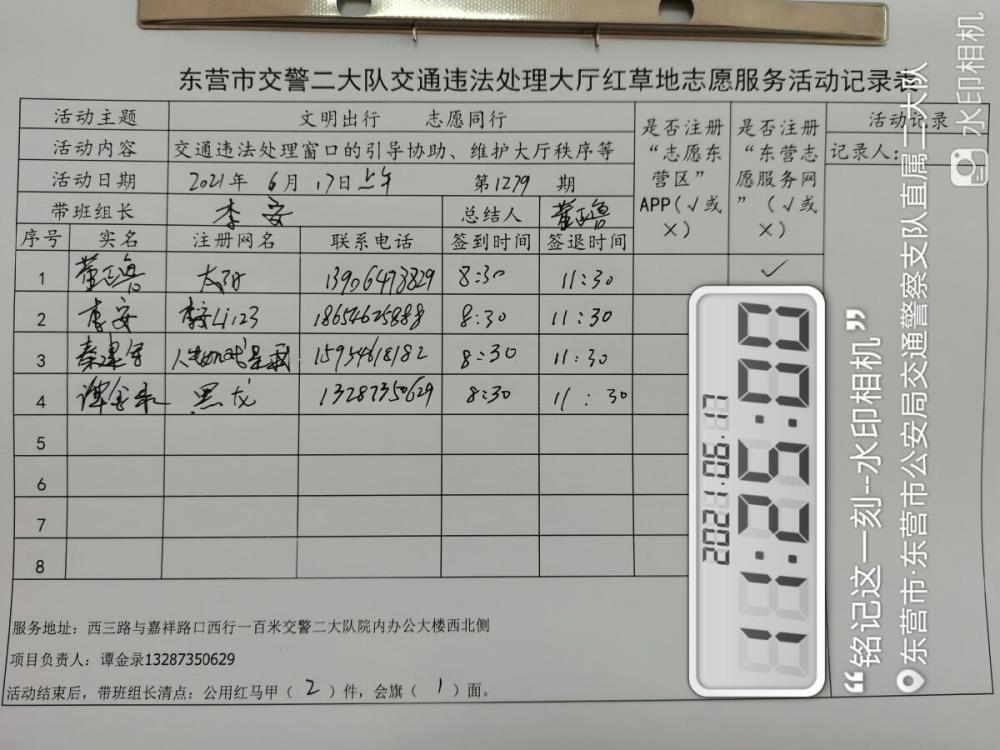 东营市交警二大队交通违法处理大厅红草地志愿服务活动记录表
活动主题 文明出行 志愿同行 是否注册“志愿东营区”APP(√或×) 是否注册“东营志愿服务网”(√或×) 活动记录
活动内容 交通违法处理窗口的引导协助、维护大厅秩序等 记录人:
活动日期 2021年 6月 17日上午 第1279 期
带班组长 李安 总结人 董鲁
序号 实名 注册网名 联系电话 签到时间 签退时间
1 太阳 13906473829 8:30 11:30 ✓
2 李安 李安Li123 18654625888 8:30 11:30
3 秦建军 15954618182 8:30 11:30
4 谭金录 黑龙 13287350629 8:30 11:30
5
6
7
8
服务地址：西三路与嘉祥路口西行一百米交警二大队院内办公大楼西北侧
项目负责人：谭金录13287350629
活动结束后，带班组长清点：公用红马甲（2）件，会旗（1）面。
11:25:00
2021.06.17
“铭记这一刻--水印相机”
东营市·东营市公安局交通警察支队直属二大队
水印相机